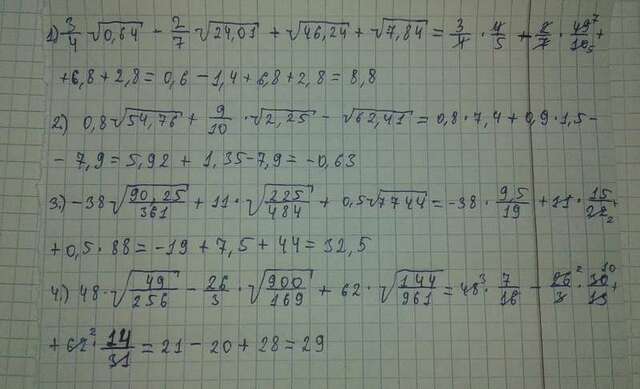 1.) 3/4 √0,64 - 2/7 √24,01 + √46,24 + √7,84 = 3/4 · 4/5 - 2/7 · 49⁷/10₅ +
+ 6,8 + 2,8 = 0,6 - 1,4 + 6,8 + 2,8 = 8,8
2.) 0,8√54,76 + 9/10 · √2,25 - √62,41 = 0,8 · 7,4 + 0,9 · 1,5 -
- 7,9 = 5,92 + 1,35 - 7,9 = -0,63
3.) -38√90,25/361 + 11 · √225/484 + 0,5√7744 = -38 · 9,5/19 + 11 · 15/22₂ +
+ 0,5 · 88 = -19 + 7,5 + 44 = 32,5
4.) 48 · √49/256 - 26/3 · √900/169 + 62 · √144/961 = 48³ · 7/16 - 26²/3 · 30¹⁰/13 +
+ 62² · 14/31 = 21 - 20 + 28 = 29